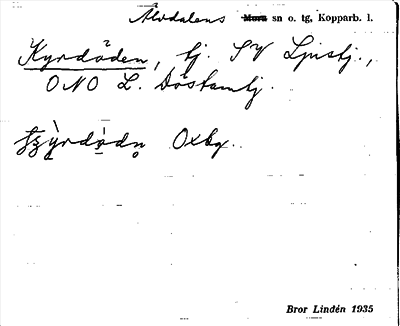 Älvdalens Mora sn o. tg, Kopparb. l.
Kyrdöden, tj. SV Ljustj.,
ONO L. Döstamtj.
Oxbg.
Bror Lindén 1935